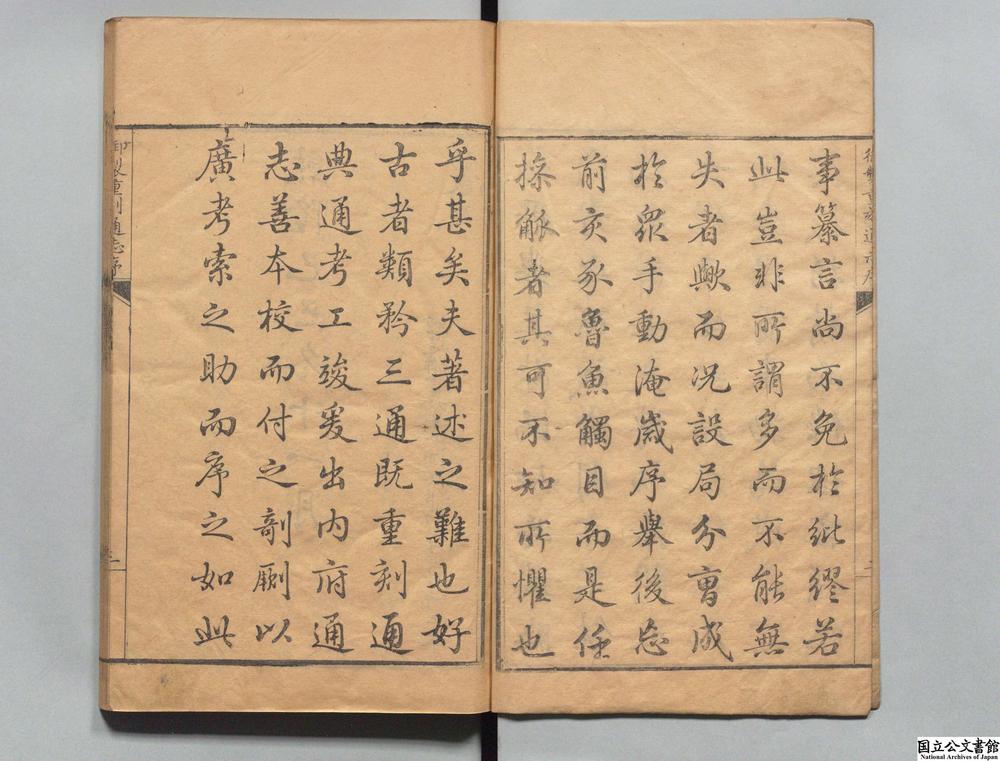 事纂言尚不免於紕繆若
此豈非所謂多而不能無
失者歟而况設局分曹成
於眾手動淹歲序舉後忘
前亥豕魯魚觸目而是任
操觚者其可不知所懼也
乎甚矣夫著述之難也好
古者類矜三通既重刻通
典通考工竣爰出內府通
志善本校而付之剞劂以
廣考索之助而序之如此
御製重刻通志序
国立公文書館
National Archives of Japan